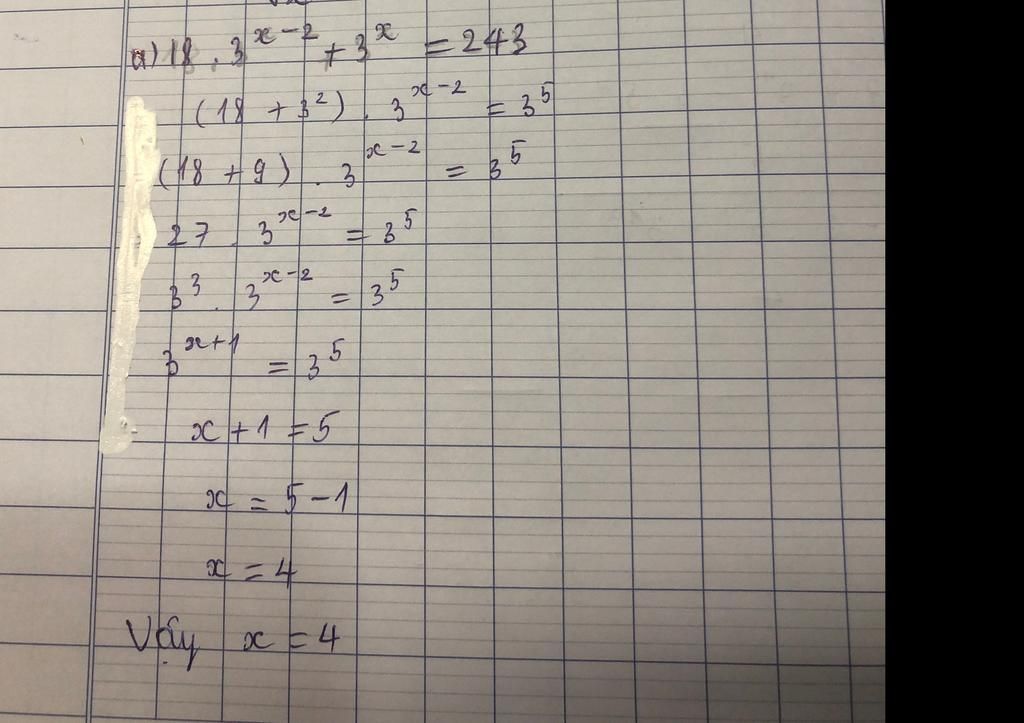 a) 18 . 3^{x-2} + 3^x = 243
(18 + 3^2) . 3^{x-2} = 3^5
(18 + 9) . 3^{x-2} = 3^5
27 . 3^{x-2} = 3^5
3^3 . 3^{x-2} = 3^5
3^{x+1} = 3^5
x + 1 = 5
x = 5 - 1
x = 4
Vậy x = 4